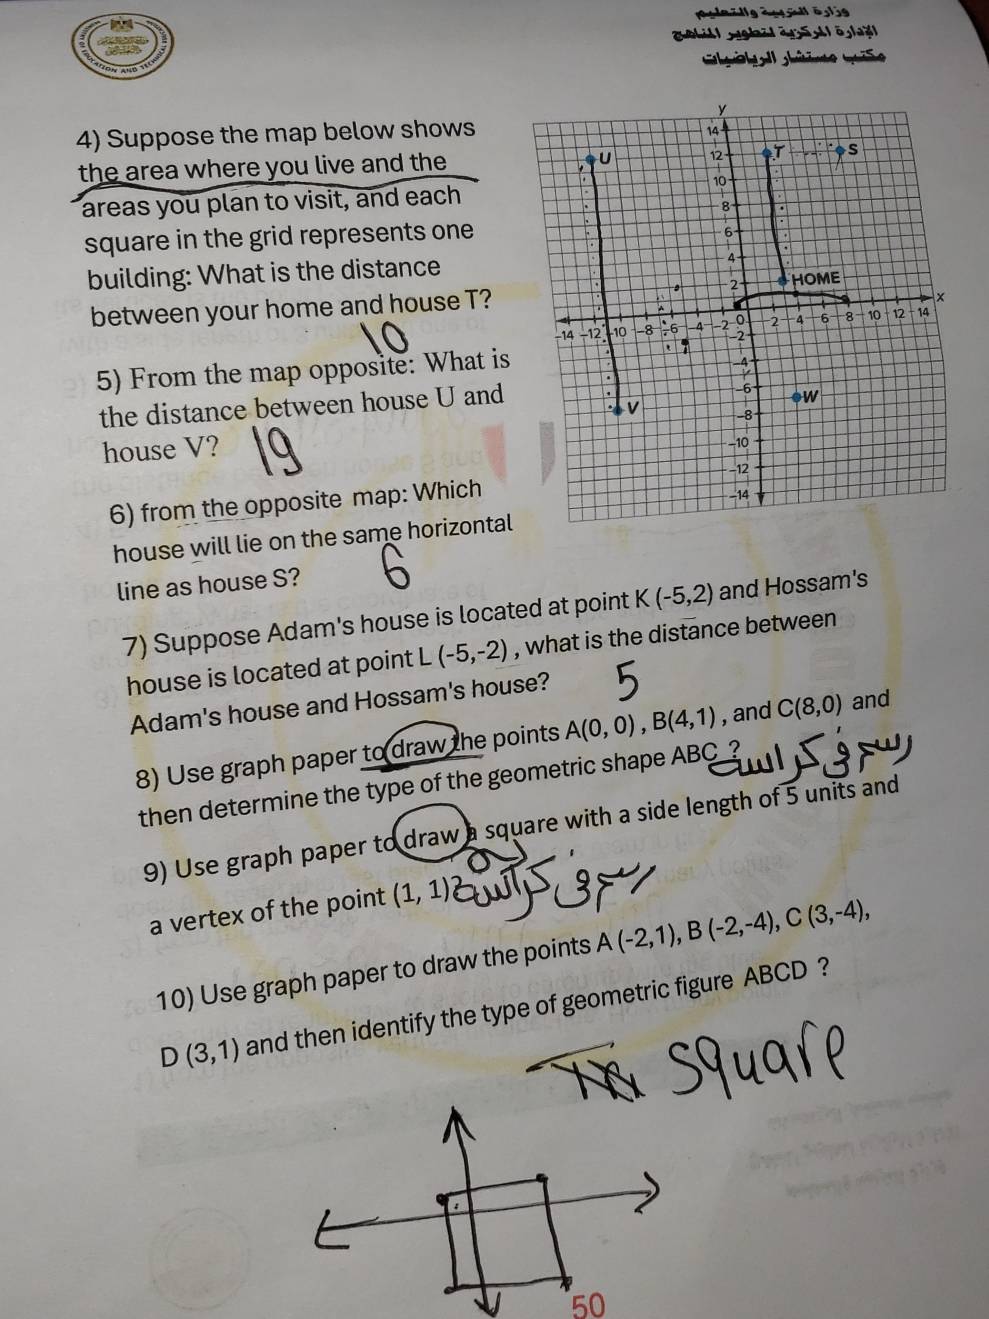 وزارة التربية والتعليم
الإدارة المركزية لتطوير المناهج
مكتب مستشار الرياضيات
4) Suppose the map below shows
the area where you live and the
areas you plan to visit, and each
square in the grid represents one
building: What is the distance
between your home and house T?
10
5) From the map opposite: What is
the distance between house U and
house V?
19
6) from the opposite map: Which
house will lie on the same horizontal
line as house S?
6
y
14
12
10
8
6
4
2
U
T
S
HOME
x
-14 -12 -10 -8 -6 -4 -2 0 2 4 6 8 10 12 14
-2
-4
-6
-8
-10
-12
-14
V
W
7) Suppose Adam's house is located at point K (-5,2) and Hossam's
house is located at point L (-5,-2) , what is the distance between
Adam's house and Hossam's house?
5
8) Use graph paper to draw the points A(0, 0) , B(4,1) , and C(8,0) and
then determine the type of the geometric shape ABC ?
رسم في كراسة
9) Use graph paper to draw a square with a side length of 5 units and
a vertex of the point (1, 1)?
رسم في كراسة
10) Use graph paper to draw the points A (-2,1), B (-2,-4), C (3,-4),
D (3,1) and then identify the type of geometric figure ABCD ?
square
50